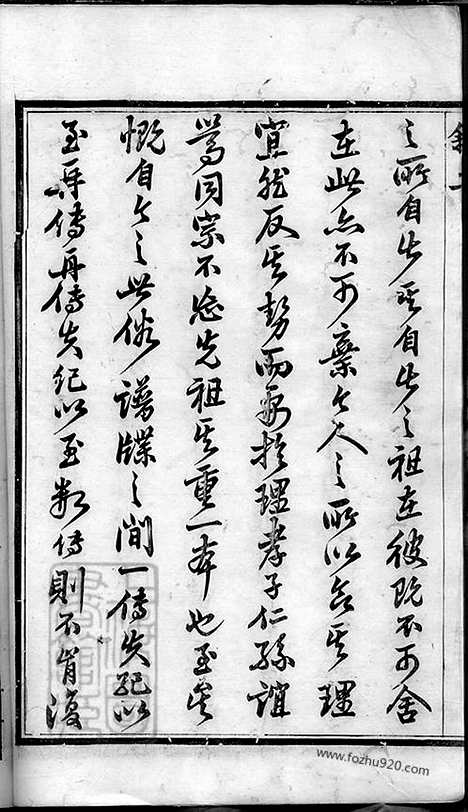 之所自出其自出之祖在彼既不可舍
在此亦不可棄今人之所以合其理
宜然反其勢而要於理孝子仁孫誼
篤同宗不忘先祖其重一本也至矣
慨自今之世俗譜牒之間一傳失紀以
至再傳再傳失紀以至數傳則不肖復
www.fozhu920.com